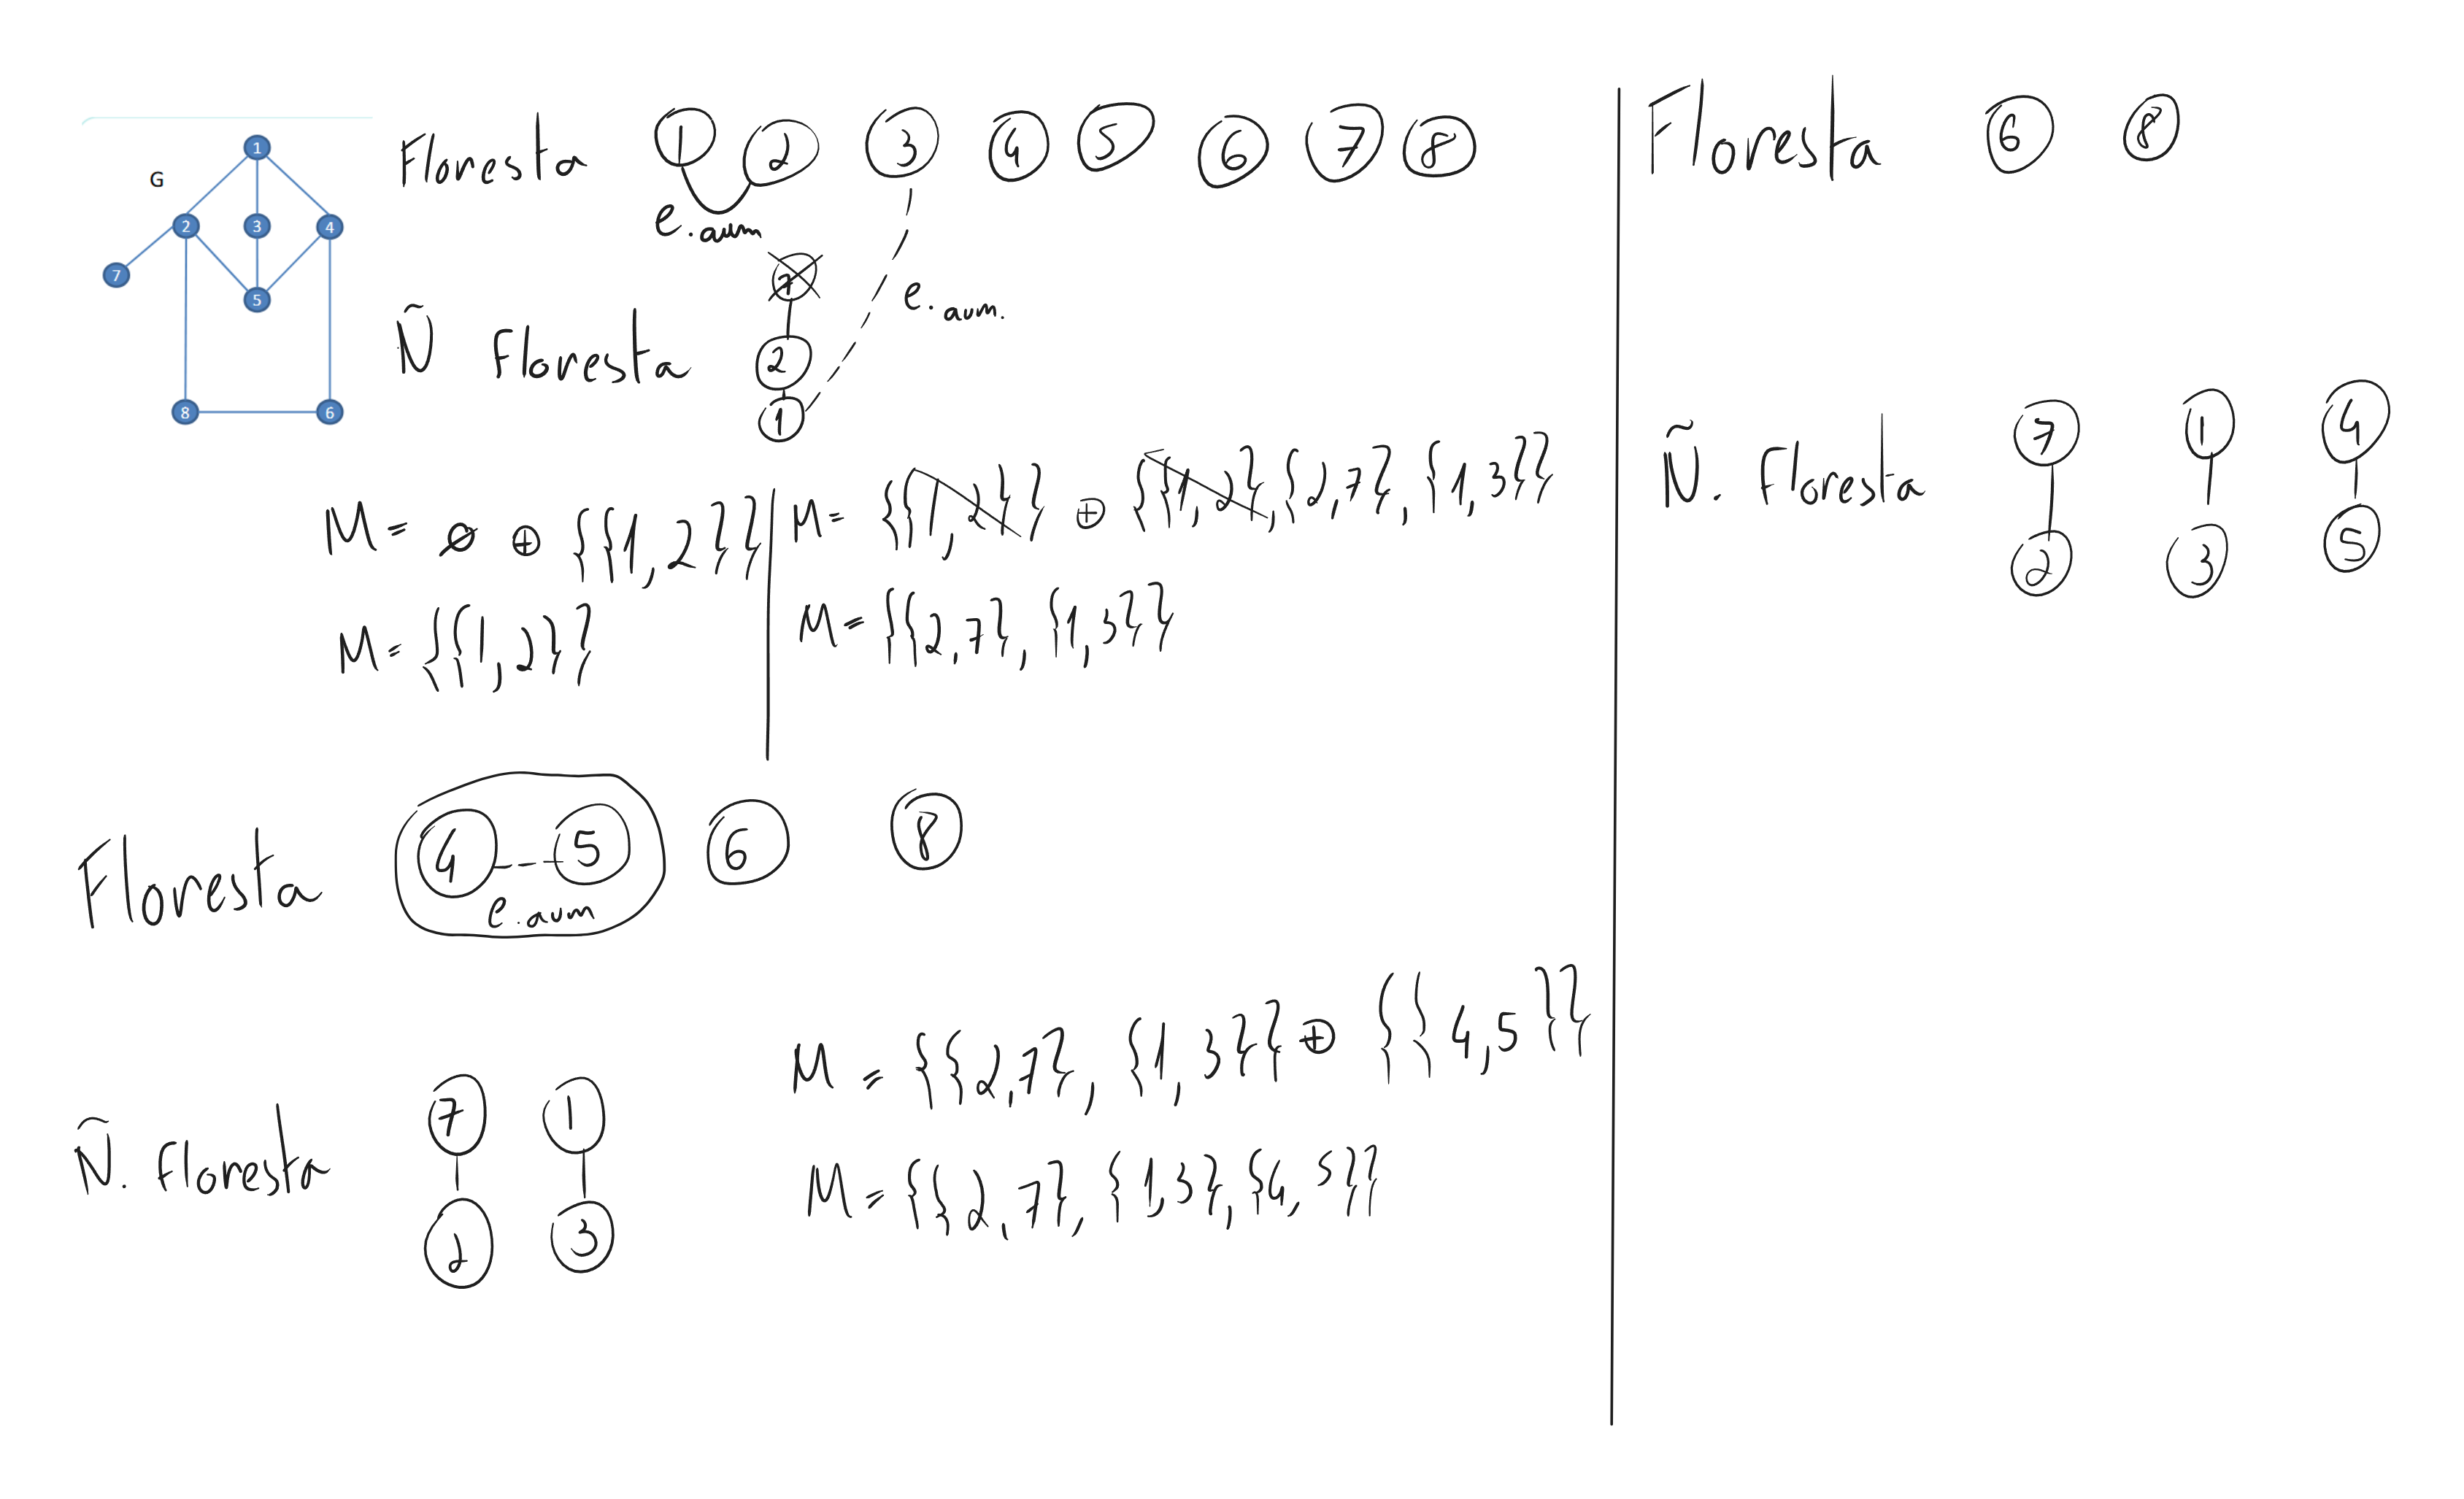 G
1
2 3 4
7
5
8 6
Floresta 1 2 3 4 5 6 7 8
e.aum
7
e.aum.
Ñ Floresta 2
1
M = ∅ ⊕ {{1,2}}
M = {{1,2}}
M = {{1,2}} ⊕ {{1,2},{2,7},{1,3}}
M = {{2,7},{1,3}}
Floresta 4 5 6 8
e.aum
Ñ. Floresta 7 1
2 3
M = {{2,7},{1,3}} ⊕ {{4,5}}
M = {{2,7},{1,3},{4,5}}
Floresta 6 8
Ñ. Floresta 7 1 4
2 3 5